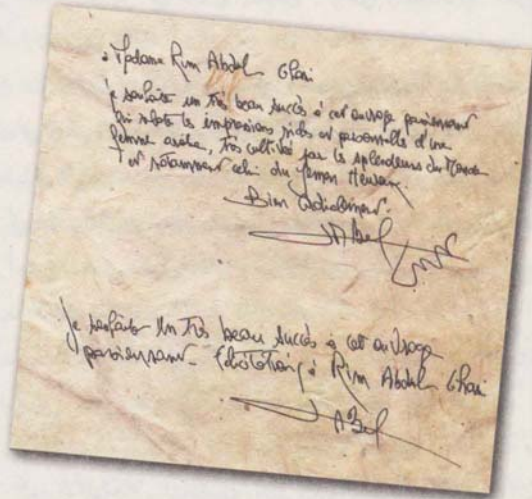 à Madame Rim Abdul Ghani
je souhaite un très beau succès à cet ouvrage passionnant
qui relate les impressions et personnelles d'une
femme arabe, très cultivée par les splendeurs du Monde
et notamment celui du Yemen
Bien Cordialement.
Je souhaite un très beau succès à cet ouvrage
passionnant - félicitations à Rim Abdul Ghani